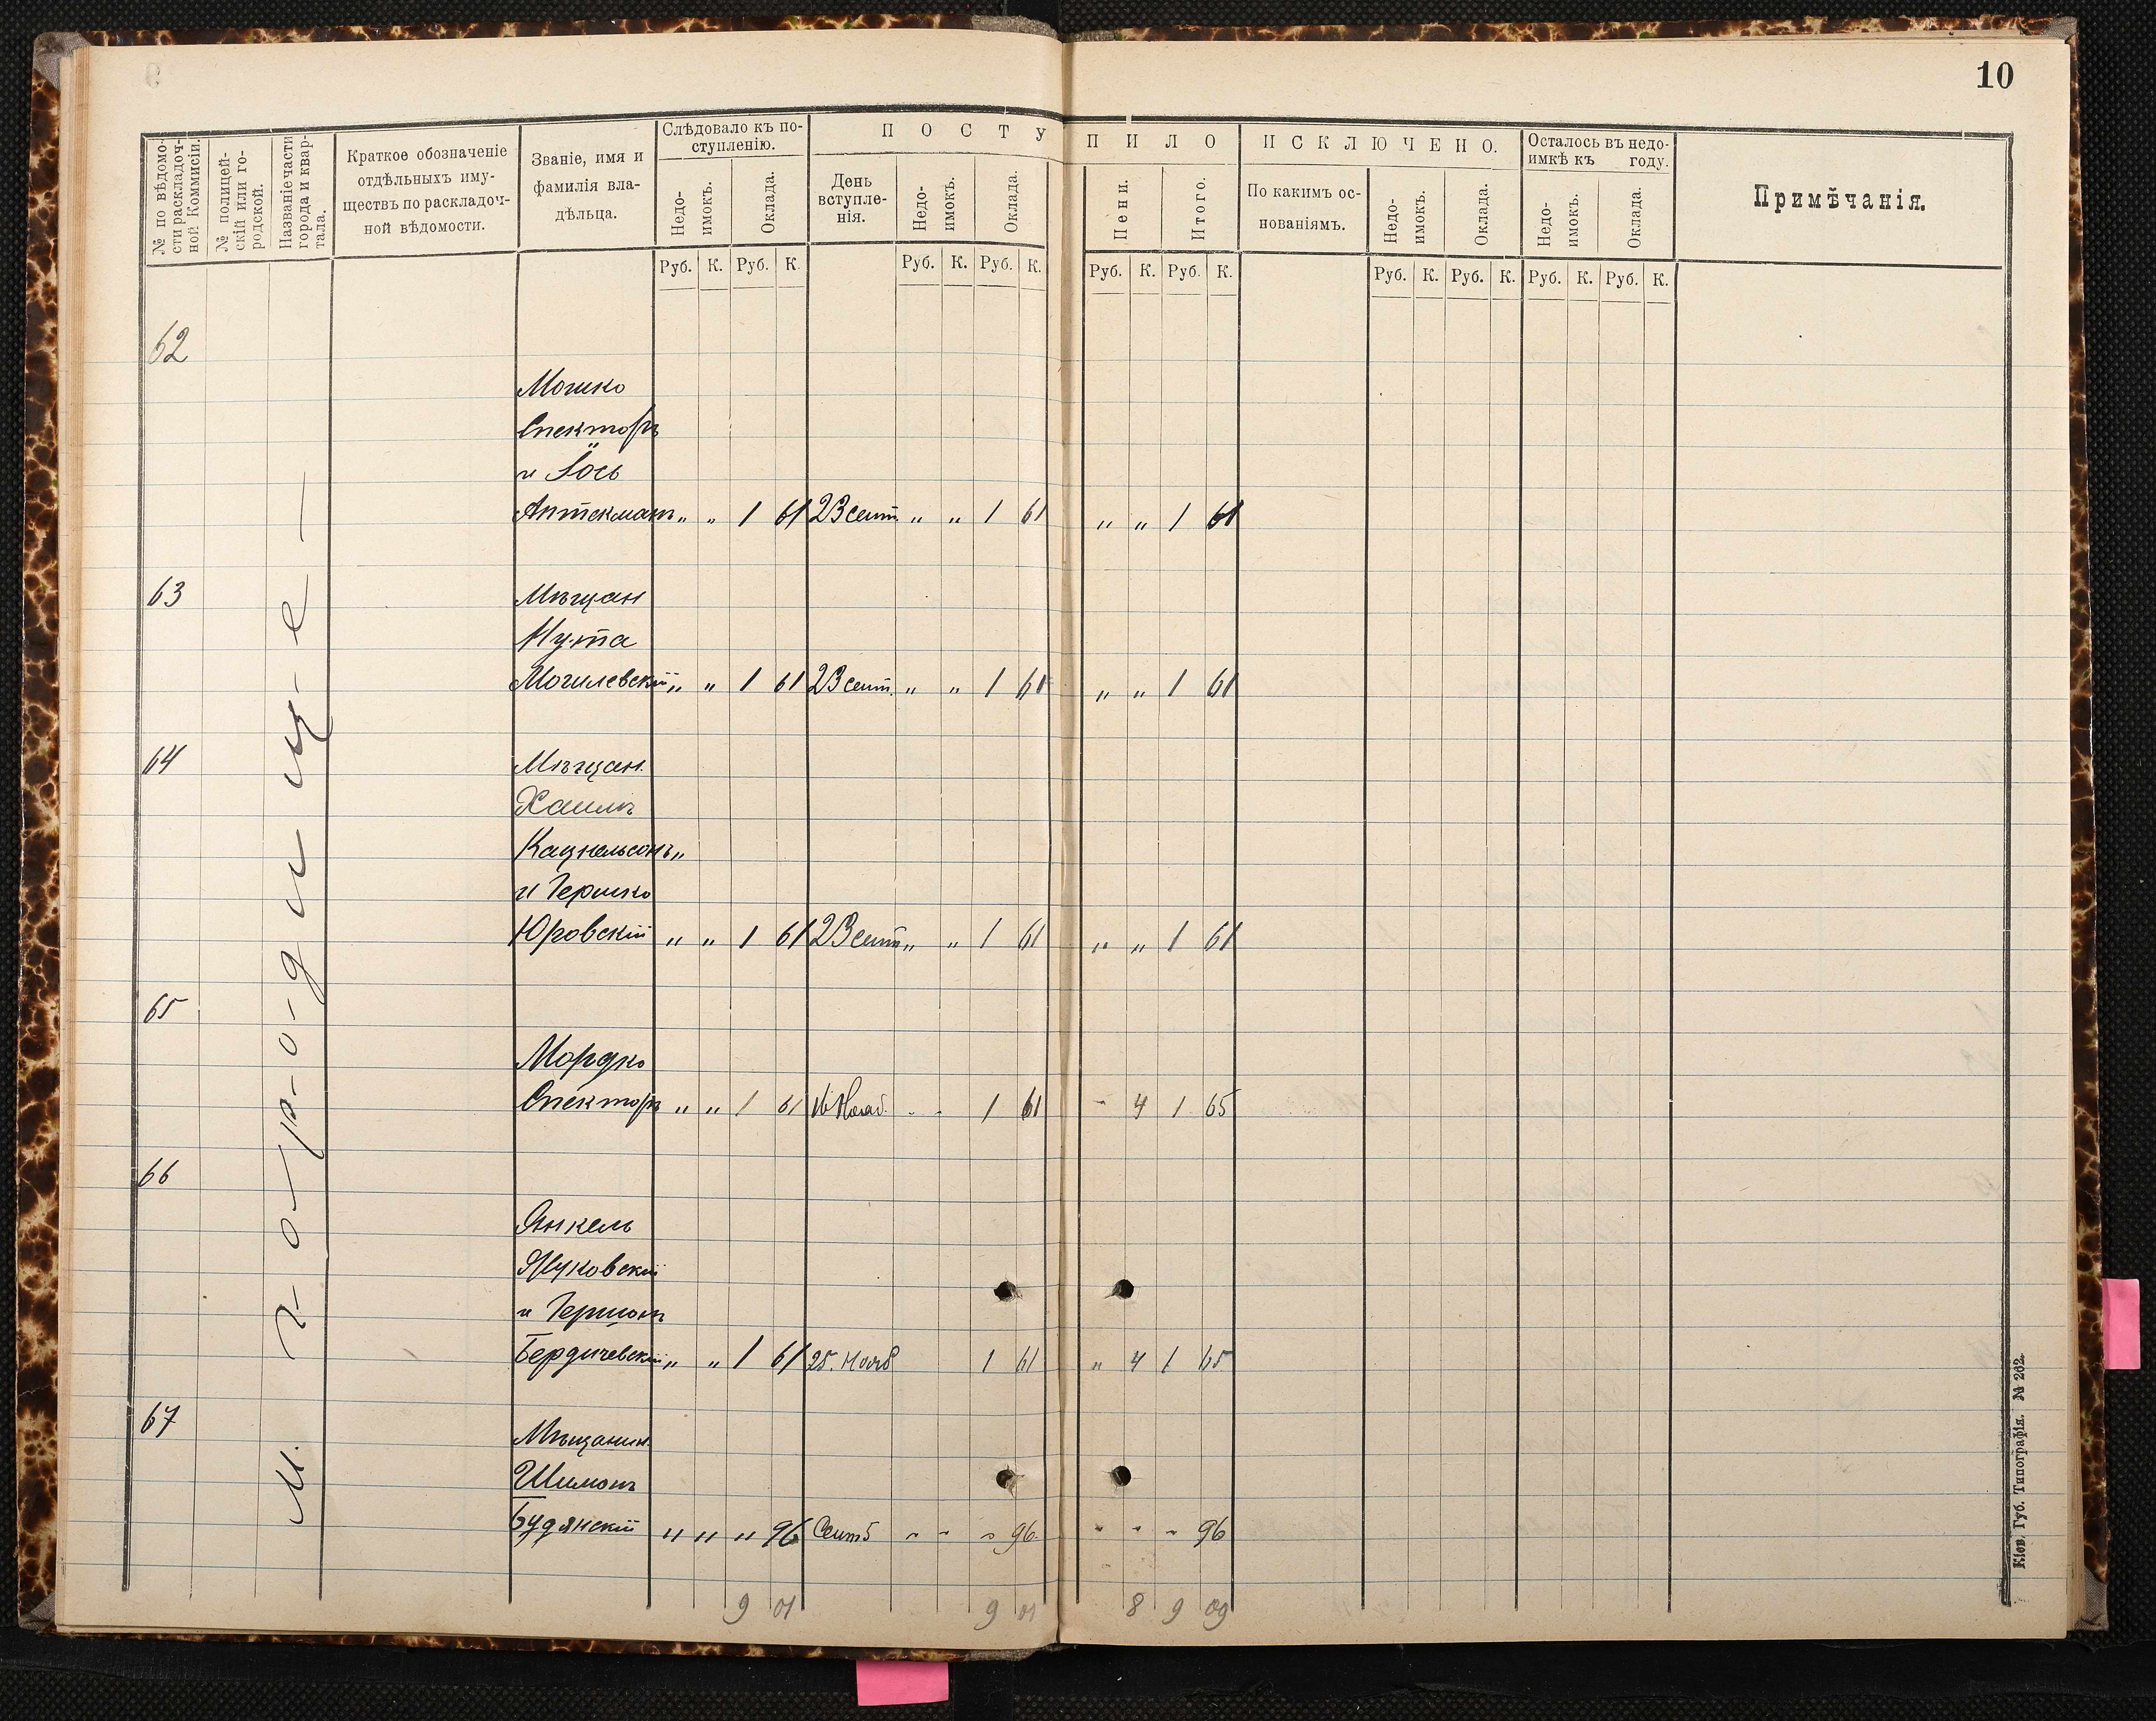 10
№ по вѣдомо-
сти раскладоч-
ной Коммисіи.
№ полицей-
скій или го-
родской.
Названіе части
города и квар-
тала.
Краткое обозначеніе
отдѣльныхъ иму-
ществъ по раскладоч-
ной вѣдомости.
Званіе, имя и
фамилія вла-
дѣльца.
Слѣдовало къ по-
ступленію.
Недо-
имокъ.
Оклада.
П О С Т У
День
вступле-
нія.
Недо-
имокъ.
Оклада.
П И Л О
Пени.
Итого.
И С К Л Ю Ч Е Н О.
По какимъ ос-
нованіямъ.
Недо-
имокъ.
Оклада.
Осталось въ недо-
имкѣ къ году.
Недо-
имокъ.
Оклада.
Примѣчанія.
Руб. К. Руб. К. Руб. К. Руб. К. Руб. К. Руб. К. Руб. К. Руб. К. Руб. К. Руб. К.
М. г-о-р-о-д-и-щ-е-
62
Мошко
Спекторъ
и Іось
Аптекманъ „ „ 1 61 23 сент. „ „ 1 61 „ „ 1 61
63
Мѣщан
Нута
Могилевскій „ „ 1 61 23 сент. „ „ 1 61 „ „ 1 61
64
Мѣщан.
Хаимъ
Кацнельсонъ „
и Гершко
Юровскій „ „ 1 61 23 сент „ „ 1 61 „ „ 1 61
65
Мордко
Спекторъ „ „ 1 61 16 Нояб. - - 1 61 - 4 1 65
66
Янкель
Жуковскій
и Гершонъ
Бердичевскій „ „ 1 61 25. Нояб 1 61 „ 4 1 65
67
Мѣщанин.
Шимонъ
Будянскій „ „ „ 96 Сент 5 „ „ „ 96. „ „ „ 96
9 01 9 01 8 9 09
Кіев. Губ. Типографія. № 262.